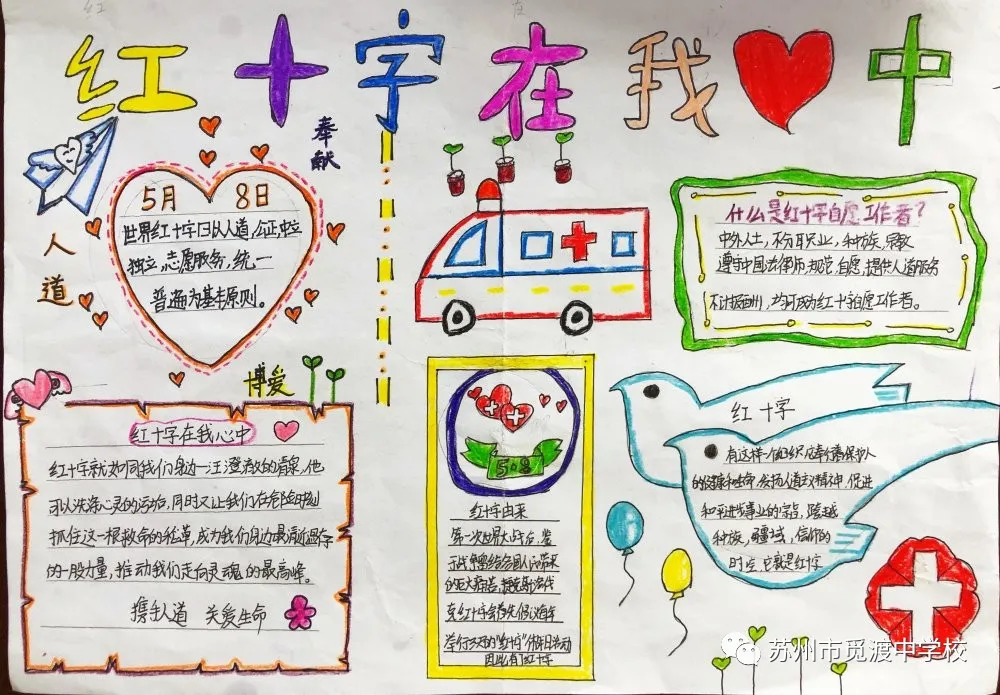 红十字在我中
奉献
人道
5月 8日
世界红十字日以人道,公正,中立
独立,志愿服务,统一
普遍为基本原则。
什么是红十字自愿工作者?
中外人士,不分职业,种族,宗教
遵守中国法律
自愿提供人道服务
不计报酬,均可成为红十字自愿工作者。
博爱
红十字在我心中
红十字就如同我们身边一汪澄澈的清泉,他
可以洗涤心灵的污垢,同时又让我们在危险时刻
抓住这一根救命的稻草,成为我们身边最
的一股力量,推动我们走向灵魂的最高峰。
携手人道 关爱生命
5·8
红十字由来
第一次世界大战后,鉴
于战争留给各国人民带来
的巨大痛苦,
克红十字会首先倡议每年
举行3天的"红十字"休战日活动
因此有红十字
红十字
有这样一个组织,它奉行着保护人
的健康和生命,发扬人道主义精神,促进
和平进步事业的宗旨,跨越
种族,疆域,信仰的
时空,它就是红十字
苏州市觅渡中学校